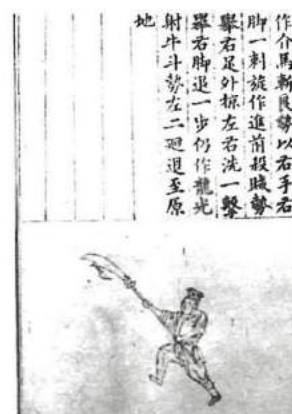 作介馬斬良勢以右手右
脚一刺旋作進前殺賊勢
擧右足外掠左右洗一擊
畢右脚退一步仍作龍光
射牛斗勢左二廻退至原
地